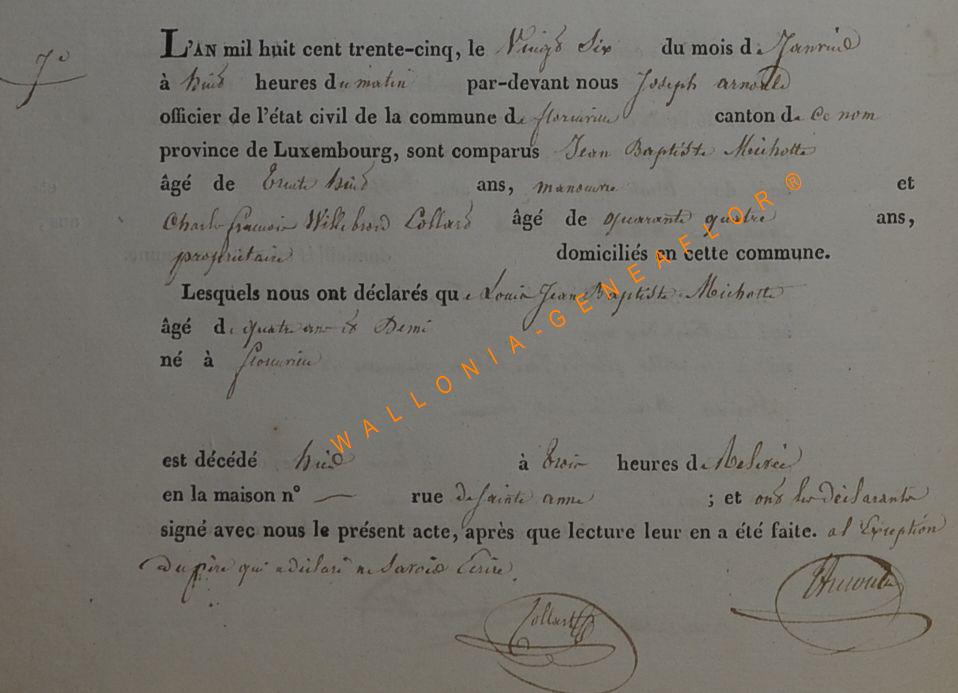 7e
L'AN mil huit cent trente-cinq, le Vingt Six du mois de Janvier
à huit heures du matin par-devant nous Joseph arnould
officier de l'état civil de la commune de florenville canton de ce nom
province de Luxembourg, sont comparus Jean Baptiste Michotte
âgé de trente huit ans, manoeuvre et
Charles francois Willebrord Collard âgé de quarante quatre ans,
propriétaire domiciliés en cette commune.
Lesquels nous ont déclarés que Louis Jean Baptiste Michotte
âgé de quatre ans et Demi
né à florenville
est décédé hier à trois heures de Relevée
en la maison n° — rue de Sainte anne ; et ont les déclarants
signé avec nous le présent acte, après que lecture leur en a été faite. al Exception
du père qui a déclaré ne savoir Ecrire.
Collard
WALLONIA-GENEAFLOR®